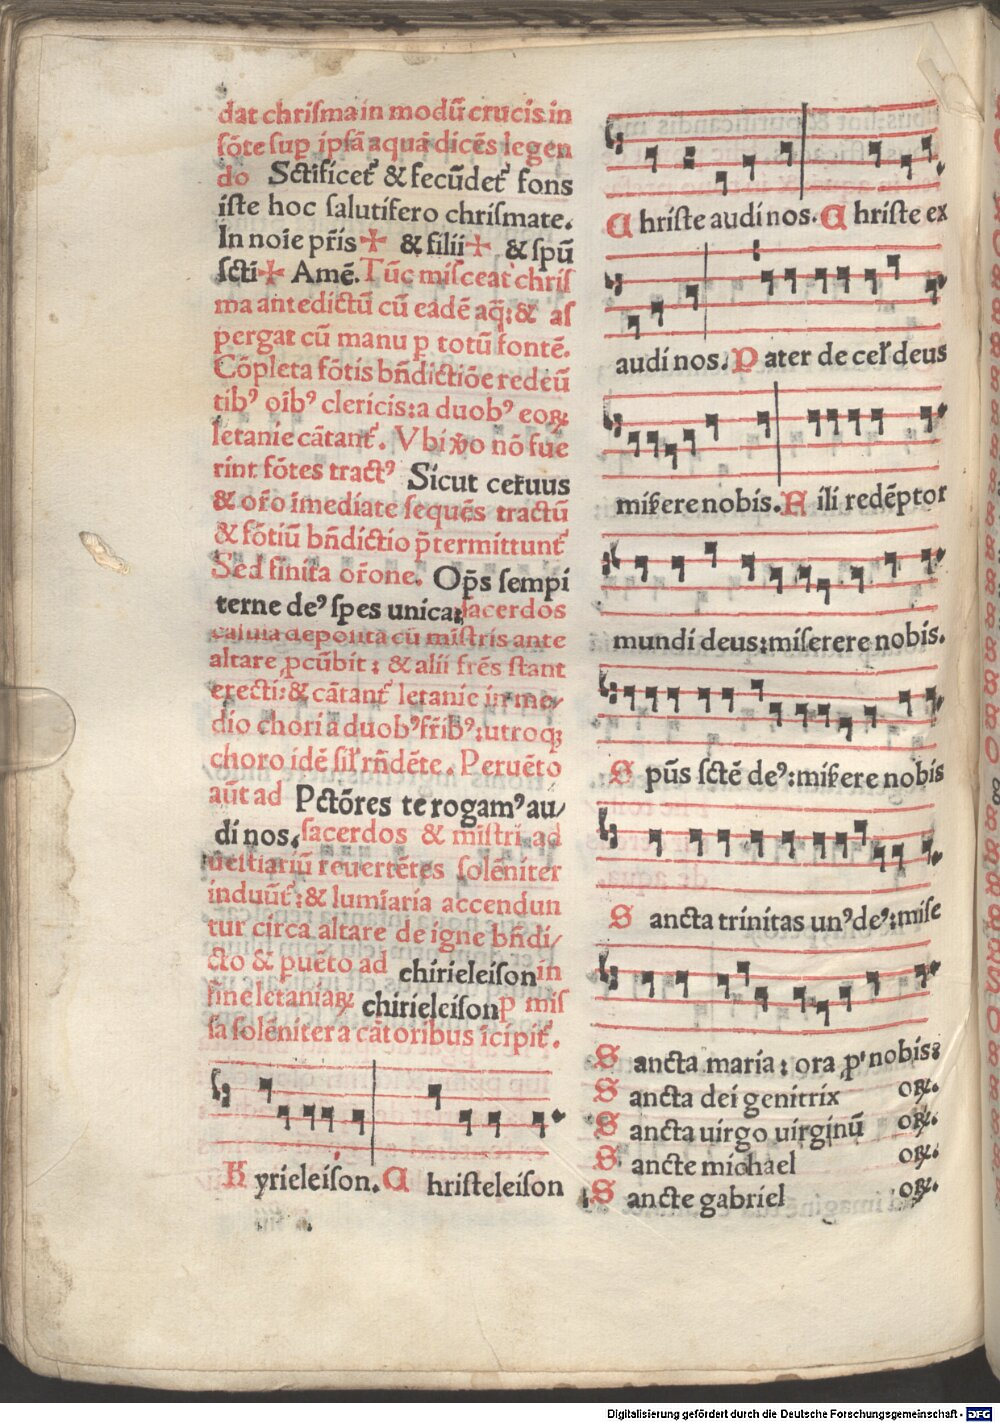 dat chriſma in modū crucis in
fōte ſup ipſā aquā dicēs legen
do Sctificet᷑ & fecūdet᷑ fons
iſte hoc ſalutifero chriſmate.
In noīe pr̄is ✠ & filii ✠ & ſpū
ſcti ✠ Amē. Tūc miſceat chriſ
ma antedictū cū eadē aq̄: & aſ
pergat cū manu ꝑ totū fontē.
Cōpleta fōtis bn̄dictiōe redeū
tibꝰ oībꝰ clericis: a duobꝰ eoꝝ
letanie cātant᷑. Vbi ṽo nō fue
rint fōtes tractꝰ Sicut ceruus
& or̄o īmediate ſequēs tractū
& fōtiū bn̄dictio p̄termittunt᷑
Sed finita or̄one. Op̄s ſempi
terne deꝰ ſpes unica: ſacerdos
caſula depoſita cū miſtris ante
altare ꝓcūbit: & alii fr̄es ſtant
erecti: & cātant᷑ letanie in me/
dio chori a duobꝰ fr̄ibꝰ: utroqꝫ
choro idē ſil̄ rn̄dēte. Peruēto
aūt ad Pctōres te rogamꝰ au/
di nos. ſacerdos & miſtri ad
ueſtiariū reuertētes ſolēniter
induūt᷑: & lumīaria accendun
tur circa altare de igne bn̄di/
cto & puēto ad chirieleiſon in
fine letaniaꝝ chirieleiſon ꝑ miſ
ſa ſolēniter a cātoribus īcipit᷑.
Kyrieleiſon. Chriſteleiſon
Chriſte audi nos. Chriſte ex
audi nos. Pater de cel̄ deus
miſ̄ere nobis. Fili redēptor
mundi deus: miſerere nobis.
Spūs ſctē deꝰ: miſ̄ere nobis
Sancta trinitas unꝰ deꝰ: miſe
Sancta maria: ora ꝓ nobis:
Sancta dei genitrix oꝝ.
Sancta uirgo uirginū oꝝ.
Sancte michael oꝝ.
Sancte gabriel oꝝ.
Digitalisierung gefördert durch die Deutsche Forschungsgemeinschaft - DFG